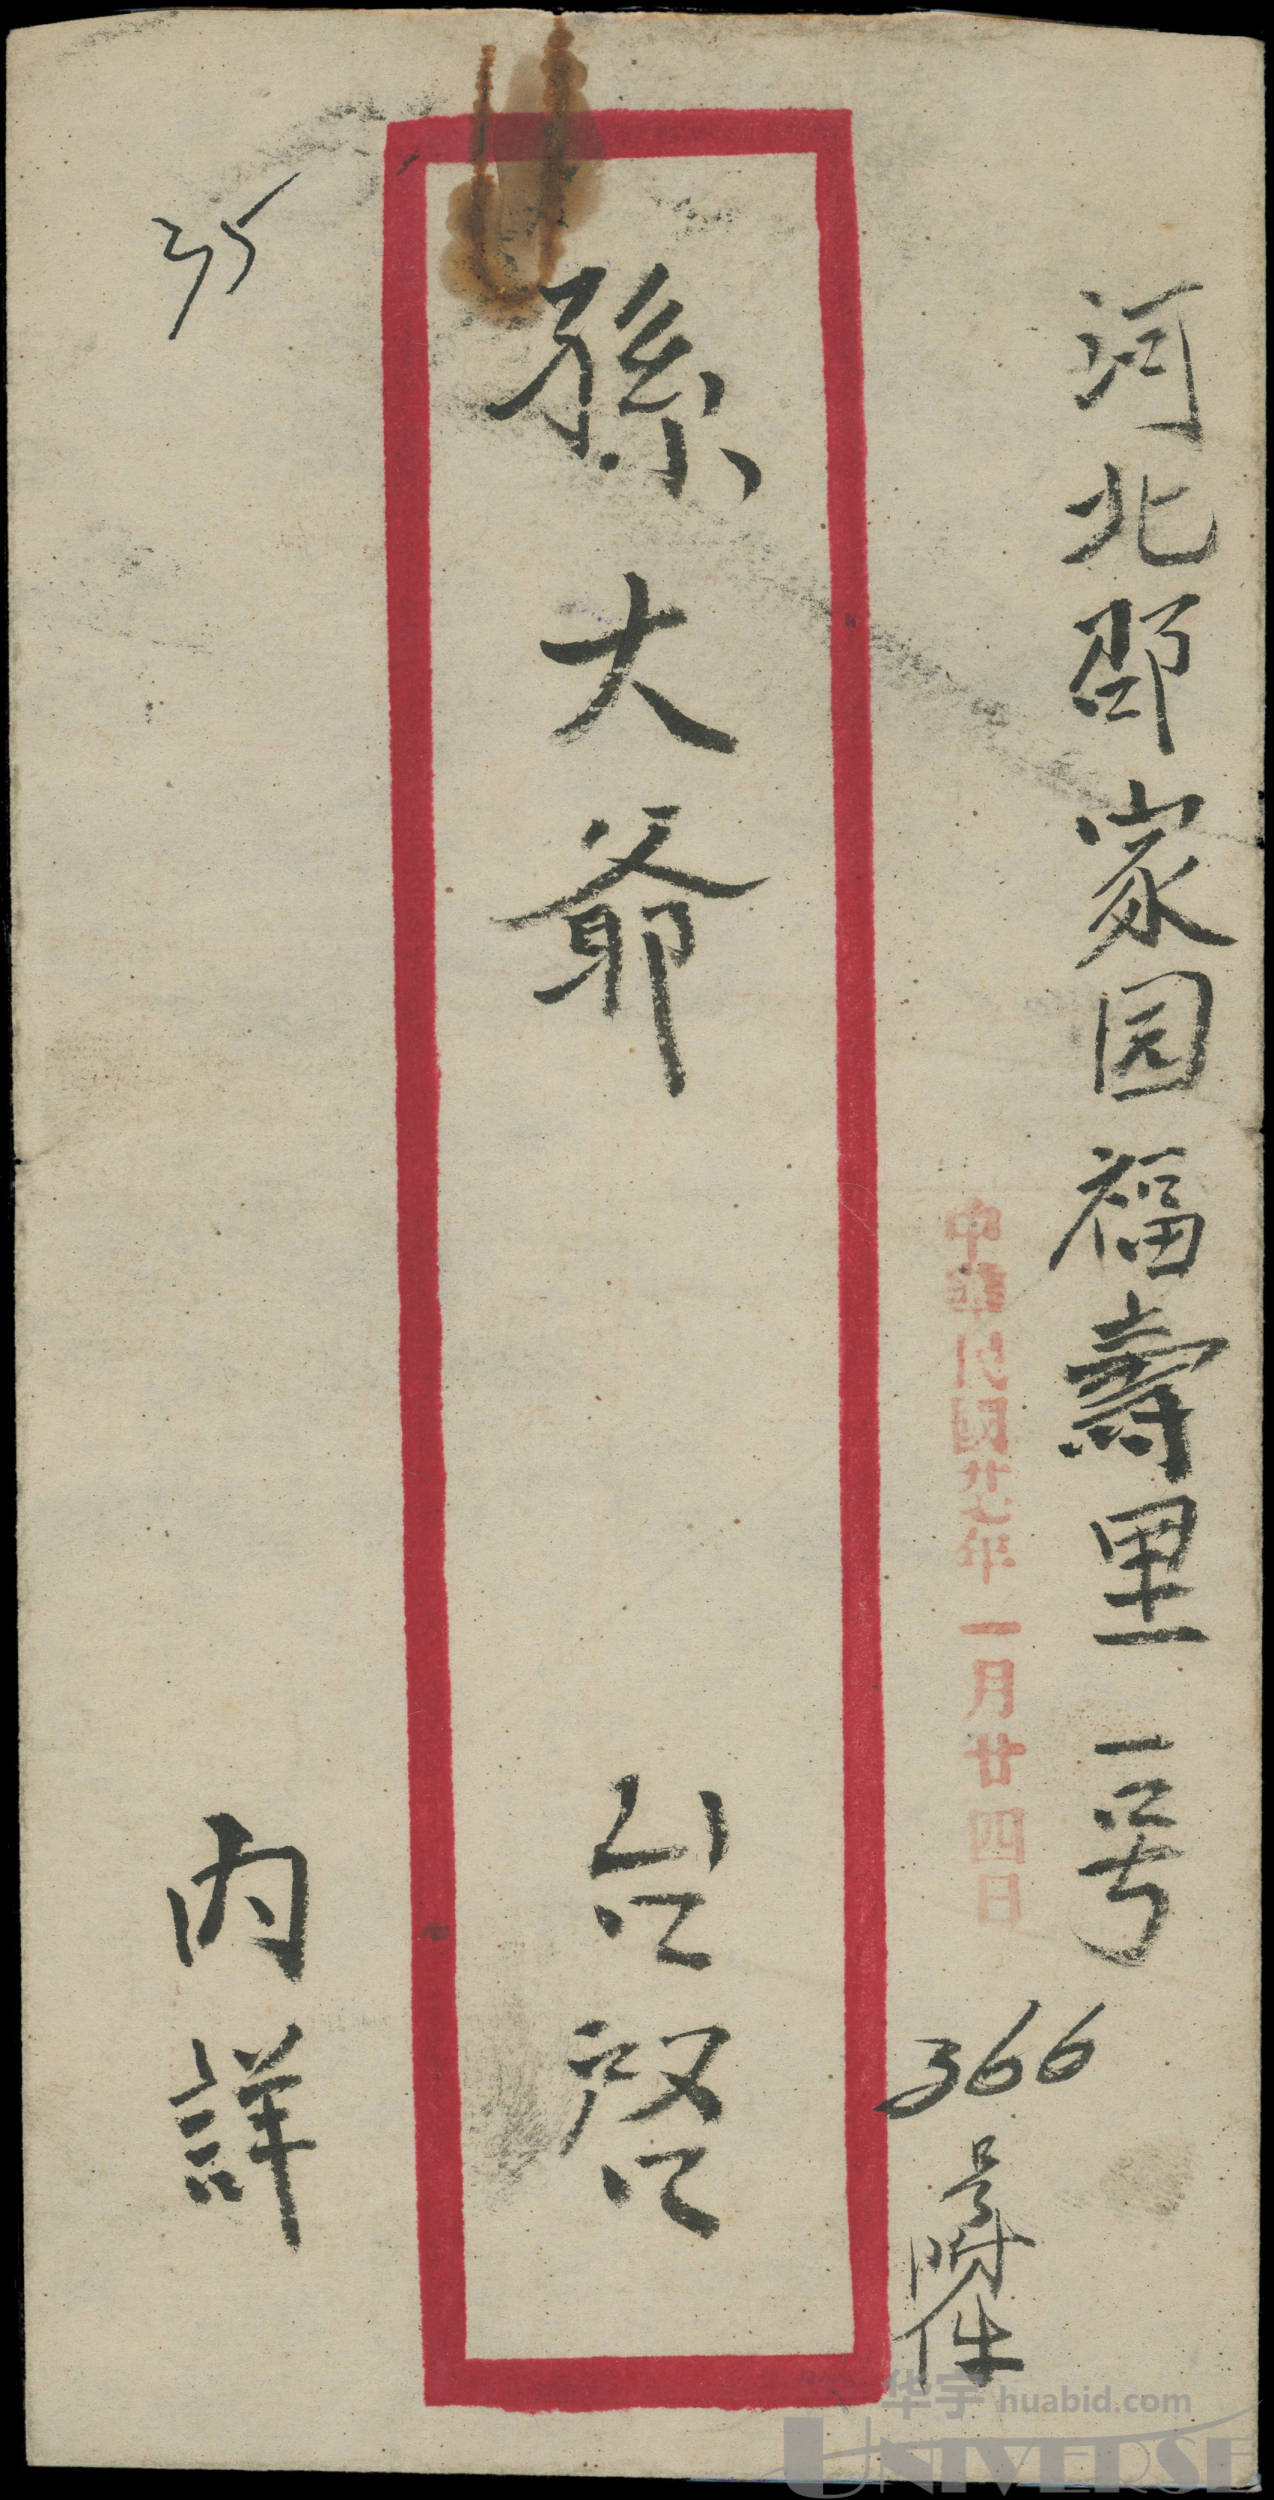 河北邵家园福壽里一号
366
号附件
中華民國廿七年一月廿四日
孫大爺 台啓
35
内詳
华宇 huabid.com
UNIVERSE